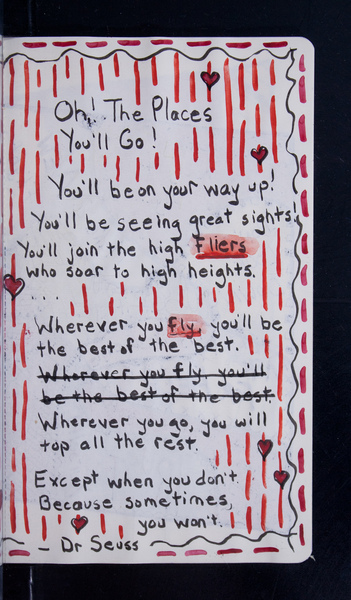 Oh! The Places
You'll Go!
You'll be on your way up!
You'll be seeing great sights.
You'll join the high fliers
who soar to high heights.
....
Wherever you fly, you'll be
the best of the best.
Wherever you fly, you'll
be the best of the best.
Wherever you go, you will
top all the rest.
Except when you don't
Because sometimes,
you won't.
- Dr Seuss